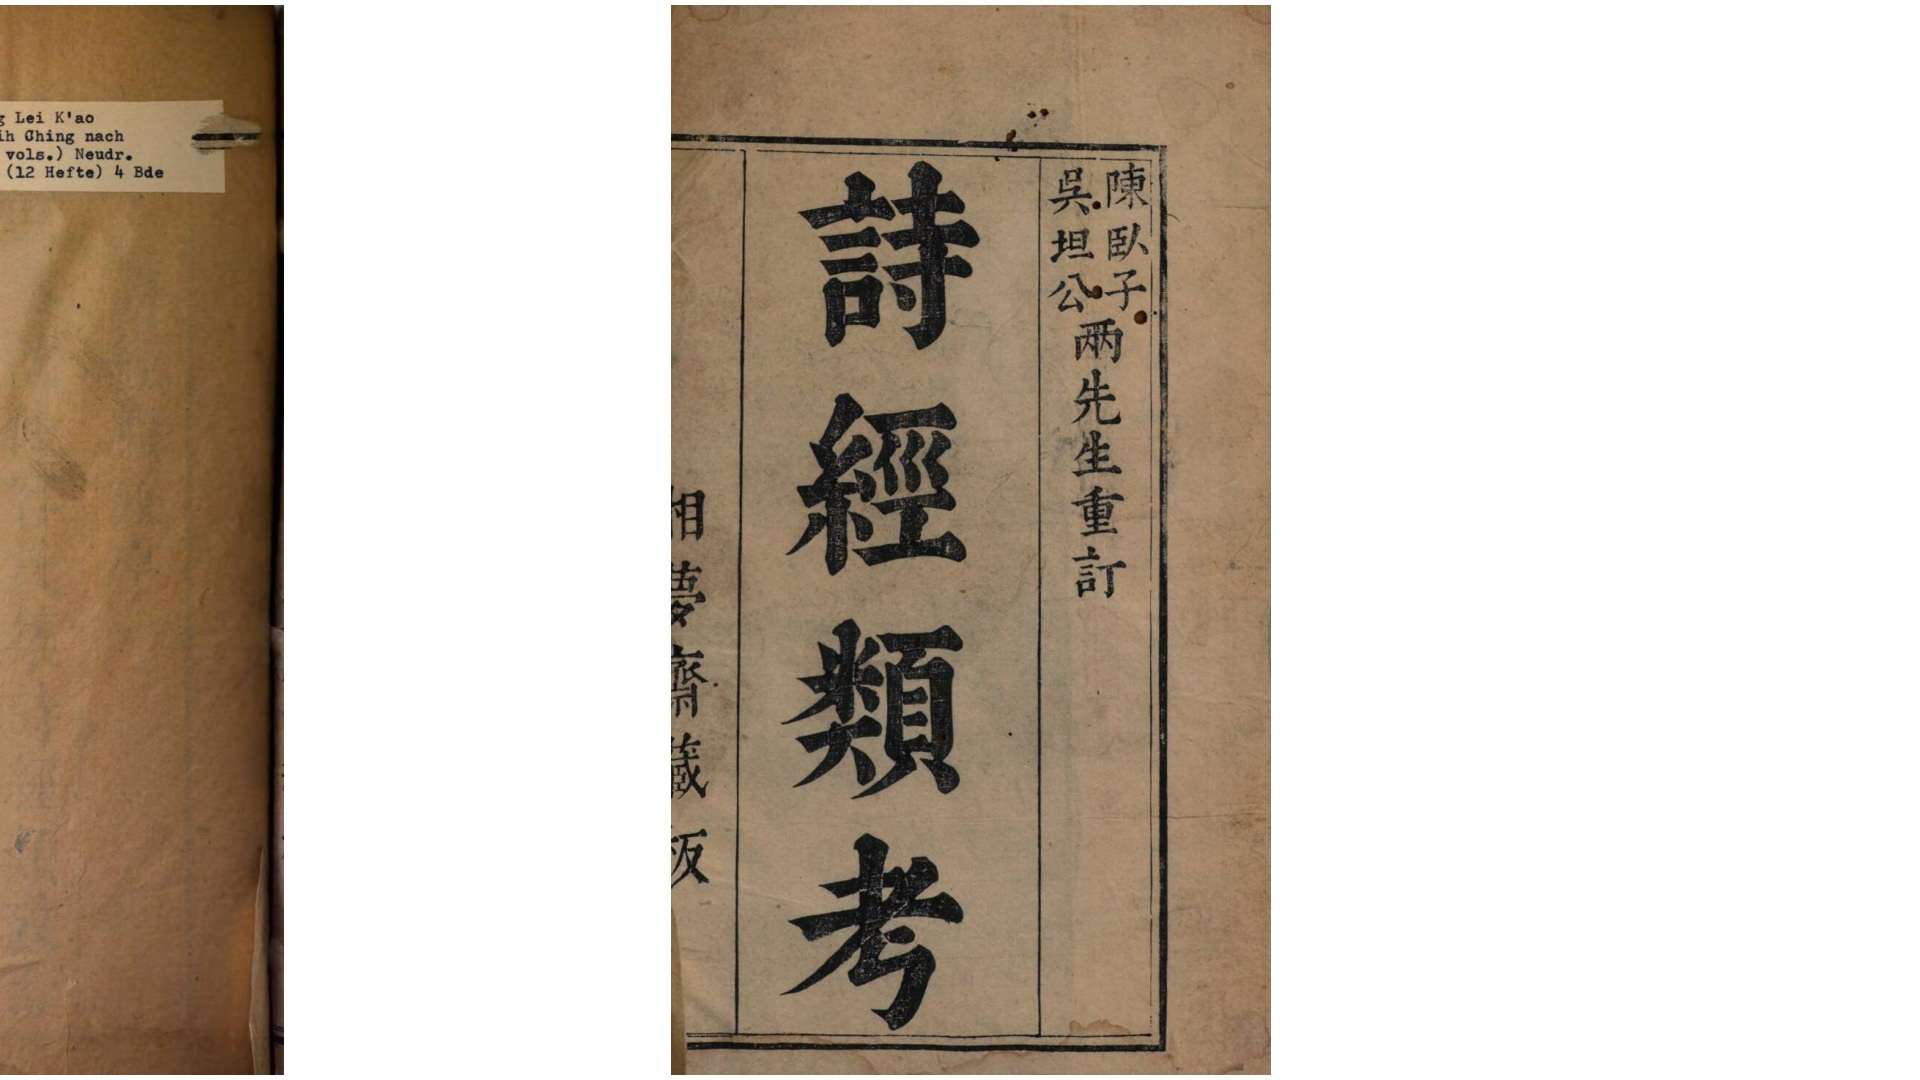 g Lei K'ao
ih Ching nach
vols.) Neudr.
(12 Hefte) 4 Bde
陳臥子
吳坦公
兩先生重訂
詩經類考
相夢齋藏板